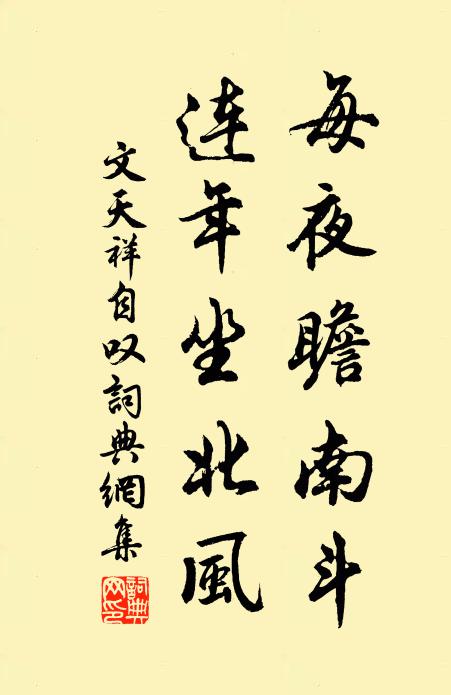 每夜瞻南斗
連年坐北風
文天祥自叹詞典網集
詞典网印